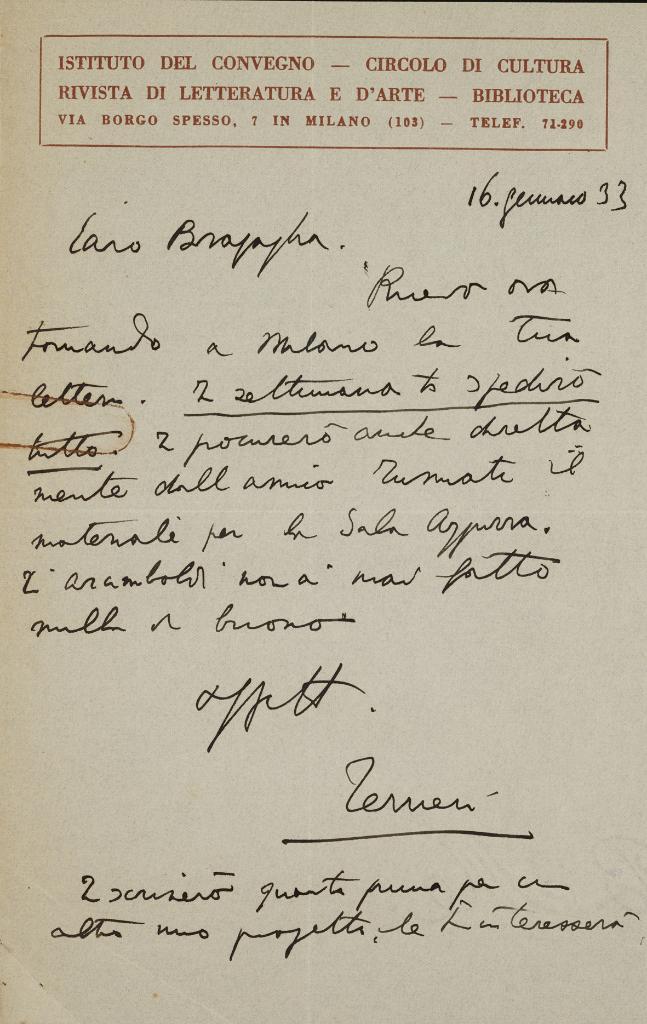 ISTITUTO DEL CONVEGNO — CIRCOLO DI CULTURA
RIVISTA DI LETTERATURA E D'ARTE — BIBLIOTECA
VIA BORGO SPESSO, 7 IN MILANO (103) — TELEF. 71-290
16. gennaio 33
Caro Bragaglia.
Ricevo ora
tornando a Milano la tua
lettera. In settimana ti spedirò
tutto. procurerò anche diretta
mente dall'amico il
materiale per la Sala Azzurra.
non à mai fatto
nulla di buono
affett.
Ferrieri
scriverò quanto prima per un
altro mio progetto, che t'interesserà